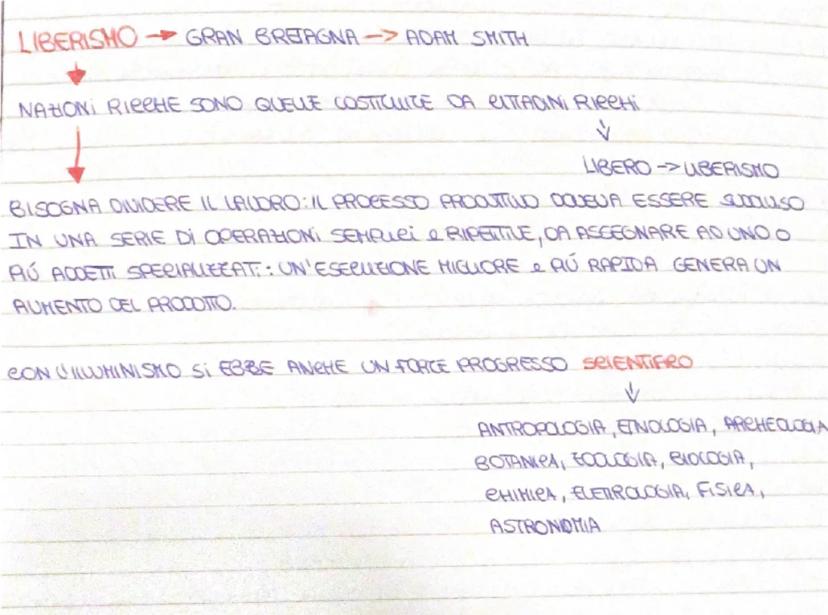 LIBERISMO → GRAN BRETAGNA → ADAM SMITH
NAZIONI RICCHE SONO QUELLE COSTITUITE DA CITTADINI RICCHI
LIBERO → LIBERISMO
BISOGNA DIVIDERE IL LAVORO: IL PROCESSO PRODUTTIVO DOVEVA ESSERE SUDDIVISO
IN UNA SERIE DI OPERAZIONI SEMPLICI e RIPETITIVE, DA ASSEGNARE AD UNO O
PIÚ ADDETTI SPECIALIZZATI: UN'ESECUZIONE MIGLIORE e PIÚ RAPIDA GENERA UN
AUMENTO DEL PRODOTTO.
CON L'ILLUMINISMO SI EBBE ANCHE UN FORTE PROGRESSO SCIENTIFICO
ANTROPOLOGIA, ETNOLOGIA, ARCHEOLOGIA
BOTANICA, ZOOLOGIA, BIOLOGIA,
CHIMICA, ELETTROLOGIA, FISICA,
ASTRONOMIA